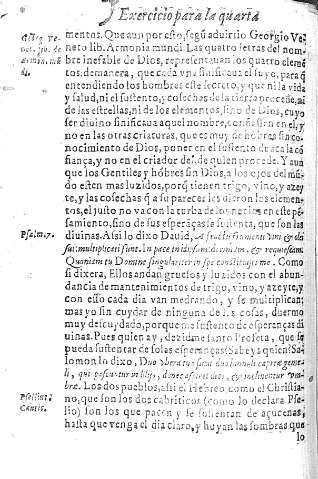 Exercicio para la quarta
mentos. Que aun por esto, segũ aduirtio Georgio Ve
neto lib. Armonia mundi. Las quatro letras del nom
bre inefable de Dios, representauan los quatro eleme
tos: demanera, que cada vna sinificaua el suyo, para q
entendiendo los hombres este secreto, y que ni la vida
y salud, ni el sustento, y cosechas de la tierra procede, ni
de las estrellas, ni de los elementos, sino de Dios, cuyo
ser diuino sinificaua aquel nombre, en el, y
no en las otras criaturas, que es muy de hõbres sin co-
nocimiento de Dios, poner en el sustento de aca la cõ
fiança, y no en el criador del, de quien procede. Y aun
que los Gentiles y hõbres sin Dios, a los ojos del mũ
do esten mas luzidos, porq tienen trigo, vino, y azey
te, y las cosechas q a su parecer les dieron los elemen-
tos, el justo no va con la turba de los necios en este pẽ-
samiento, sino de sus esperãças se sustenta, que son las
diuinas. Assi lo dixo Dauid, A fructu frumenti vini & olei
sui multiplicati sunt. In pace in idipsum dormiam, & requiescam
Quoniam tu Domine singulariter in spe constituisti me. Como
si dixera, Ellos andan gruessos y luzidos con el abun
dancia de mantenimientos de trigo, vino, y azeyte, y
con esso cada dia van medrando, y se multiplican;
mas yo sin cuydar de ninguna de ss cosas, duermo
muy descuydado, porque me sustento de esperanças di
uinas. Pues quien ay, dezidme santo Profeta, que se
pueda sustentar de solas esperanças? Sabeys quien? Sa
lomon lo dixo, Duo vbera tua sicut duo hinnuli capreæ gemel
li, qui pascuntur in lilijs, donec aspiret dies, & inclinentur vm-
bræ. Los dos pueblos, assi el Hebreo como el Christia-
no, que son los dos cabriticos (como lo declara Pse-
lio) son los que pacen y se sustentan de açucenas,
hasta que venga el dia claro, y huyan las sombras que
lo
Georg. Ve-
net. lib. de
armon. mũ
di.
Psalm. 7.
Psellius in
Cantic.